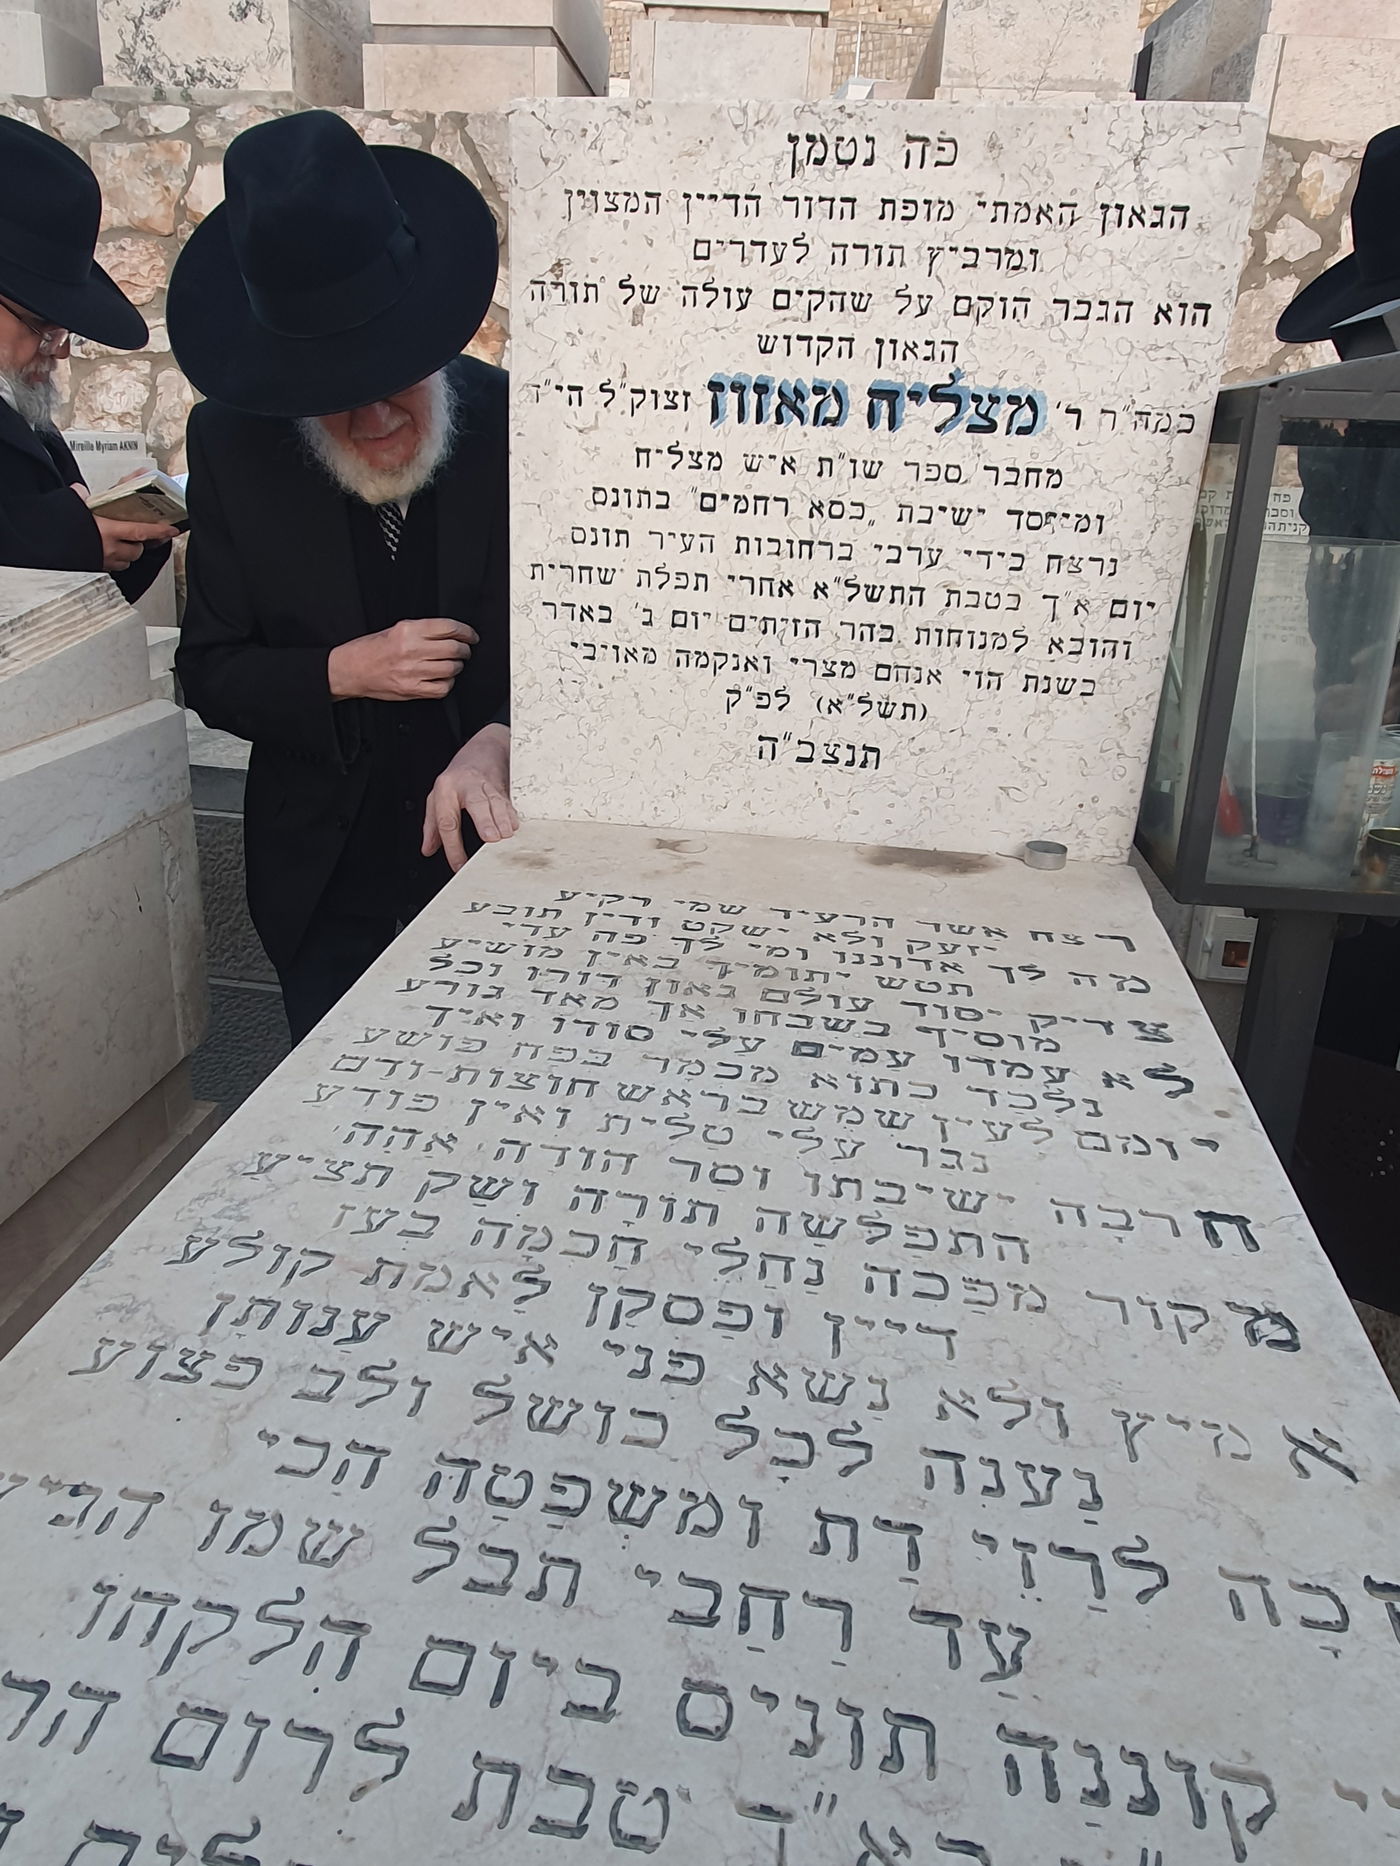 פה נטמן
הגאון האמתי מופת הדור הדיין המצוין
ומרביץ תורה לעדרים
הוא הגבר הוקם על שהקים עולה של תורה
הגאון הקדוש
כמה"ר ר' מצליח מאזוז זצוק"ל הי"ד
מחבר ספר שו"ת איש מצליח
ומייסד ישיבת „כסא רחמים" בתונס
נרצח בידי ערבי ברחובות העיר תונס
יום א"ך בטבת התשל"א אחרי תפלת שחרית
והובא למנוחות בהר הזיתים יום ב' באדר
בשנת הוי אנחם מצרי ואנקמה מאויבי
(תשל"א) לפ"ק
תנצב"ה
רצח אשר הרעיד שמי רקיע
יזעק ולא ישקט ודין תובע
מה לך אדוננו ומי לך פה עדי
תטש יתומיך באין מושיע
צדיק יסוד עולם גאון דורו וכל
מוסיף בשבחו אך מאד גורע
לא עמדו עמים עלי סודו ואיך
נלכד כתוא מכמר בפח פושע
יומם לעין שמש בראש חוצות-ודם
נגר עלי טלית ואין פודע
חרבה ישיבתו וסר הודה אהה
התפלשה תורה ושק תציע
מקור מפכה נחלי חכמה בעז
דיין ופסקן לאמת קולע
אמיץ ולא נשא פני איש ענותן
נענה לכל כושל ולב פצוע
לרזי דת ומשפטה הכי
עד רחבי תבל שמו
קוננה תונים ביום הלקחו
טבת לרום
Mireille Myriam AKNIN